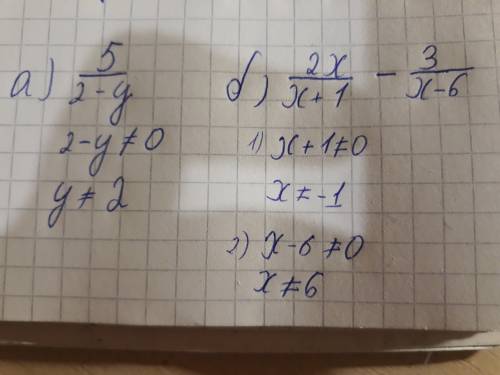 а) 5/(2-y)
2-y≠0
y≠2
б) 2x/(x+1) - 3/(x-6)
1) x+1≠0
x≠-1
2) x-6≠0
x≠6